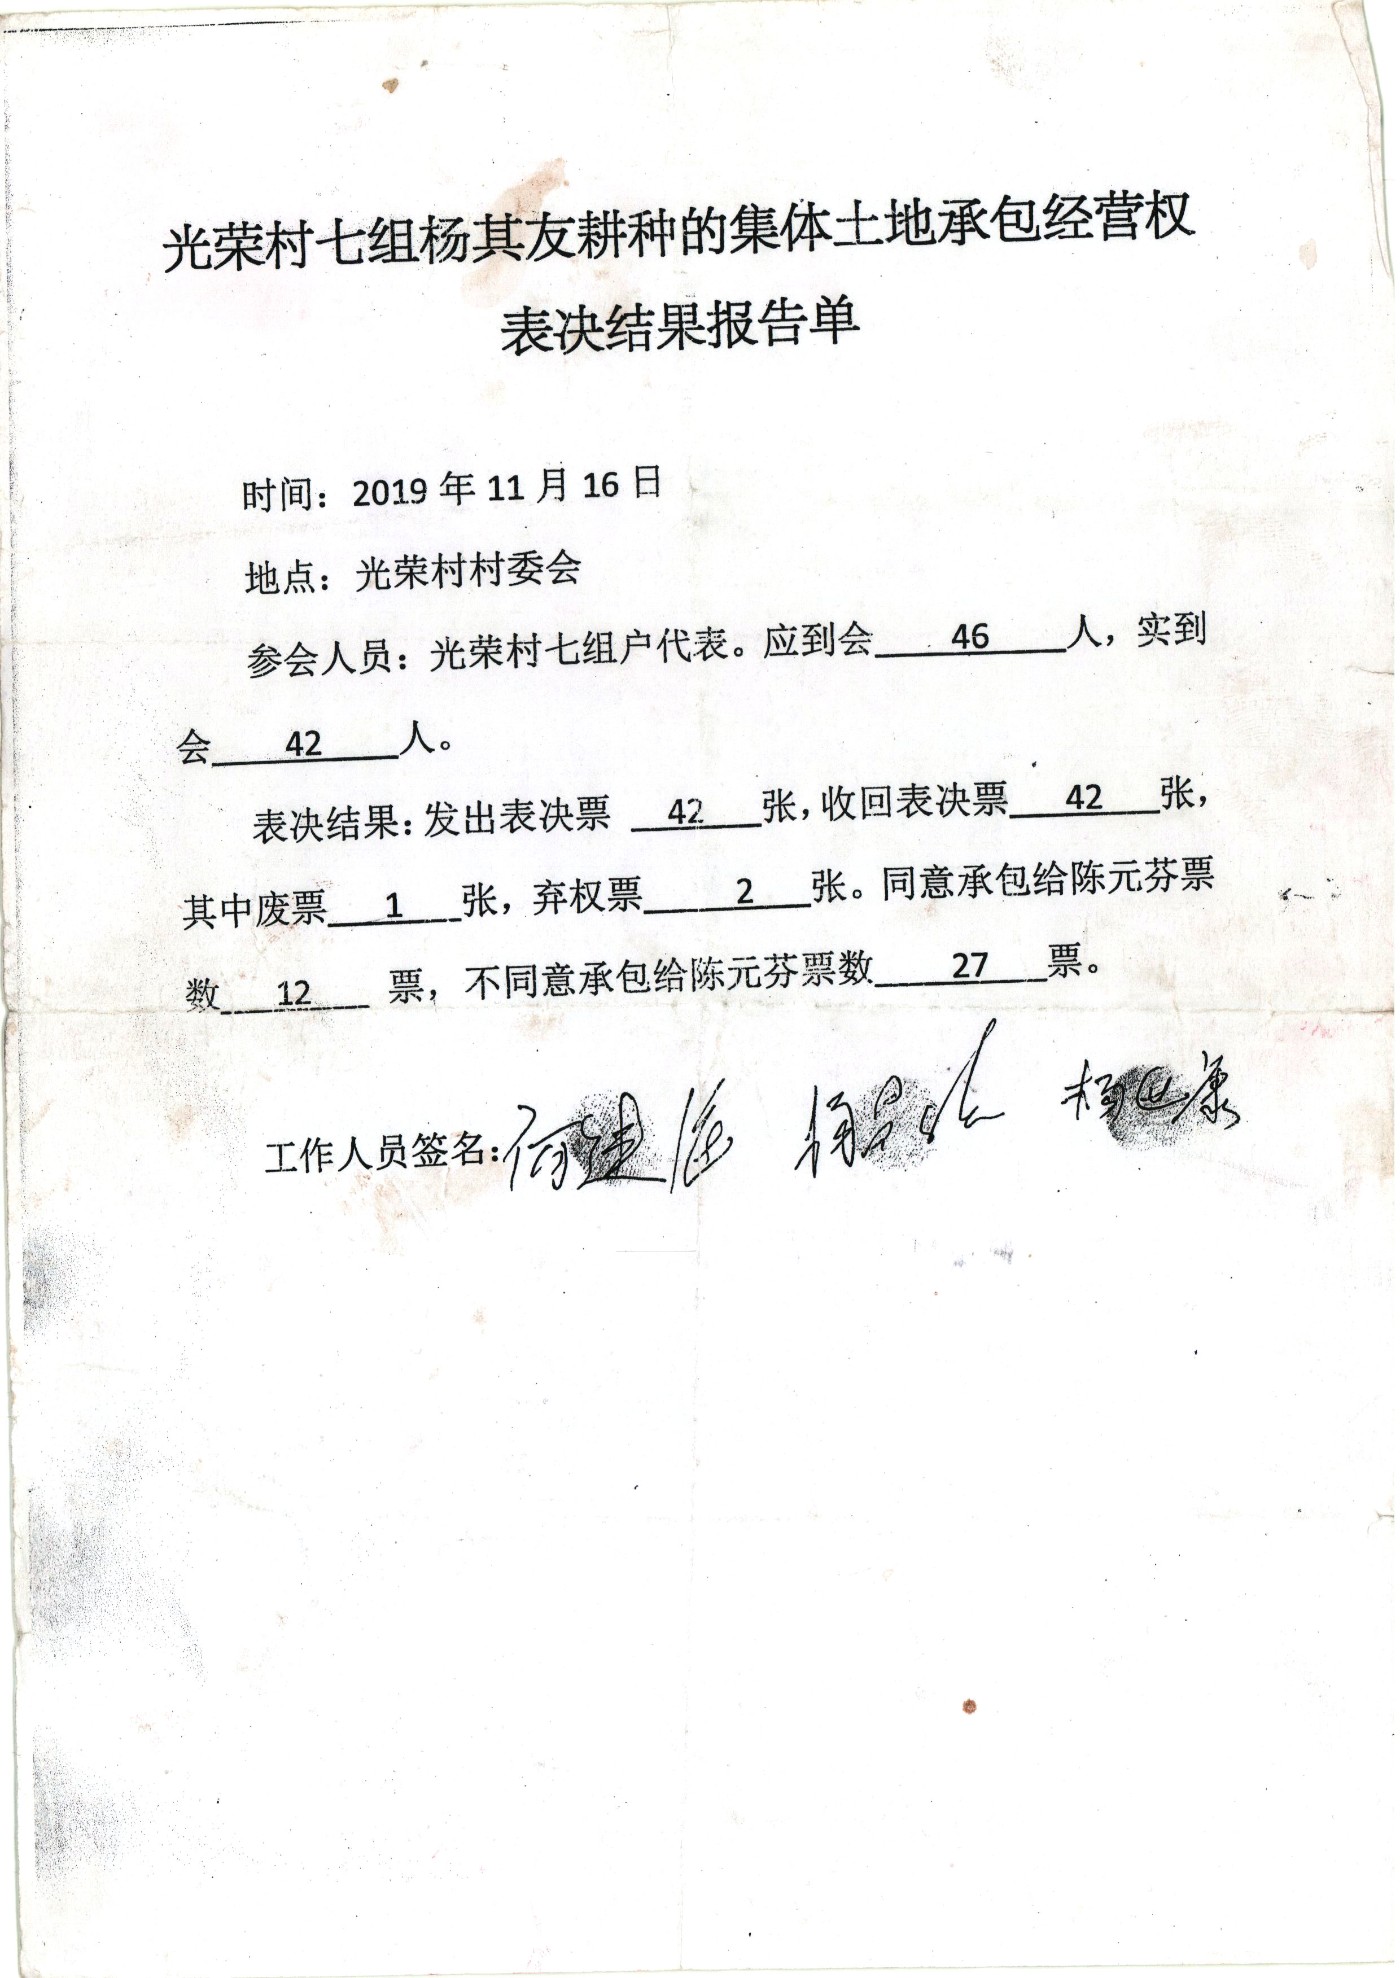 光荣村七组杨其友耕种的集体土地承包经营权
表决结果报告单
时间：2019 年 11 月 16 日
地点：光荣村村委会
参会人员：光荣村七组户代表。应到会 46 人，实到
会 42 人。
表决结果：发出表决票 42 张，收回表决票 42 张，
其中废票 1 张，弃权票 2 张。同意承包给陈元芬票
数 12 票，不同意承包给陈元芬票数 27 票。
工作人员签名：